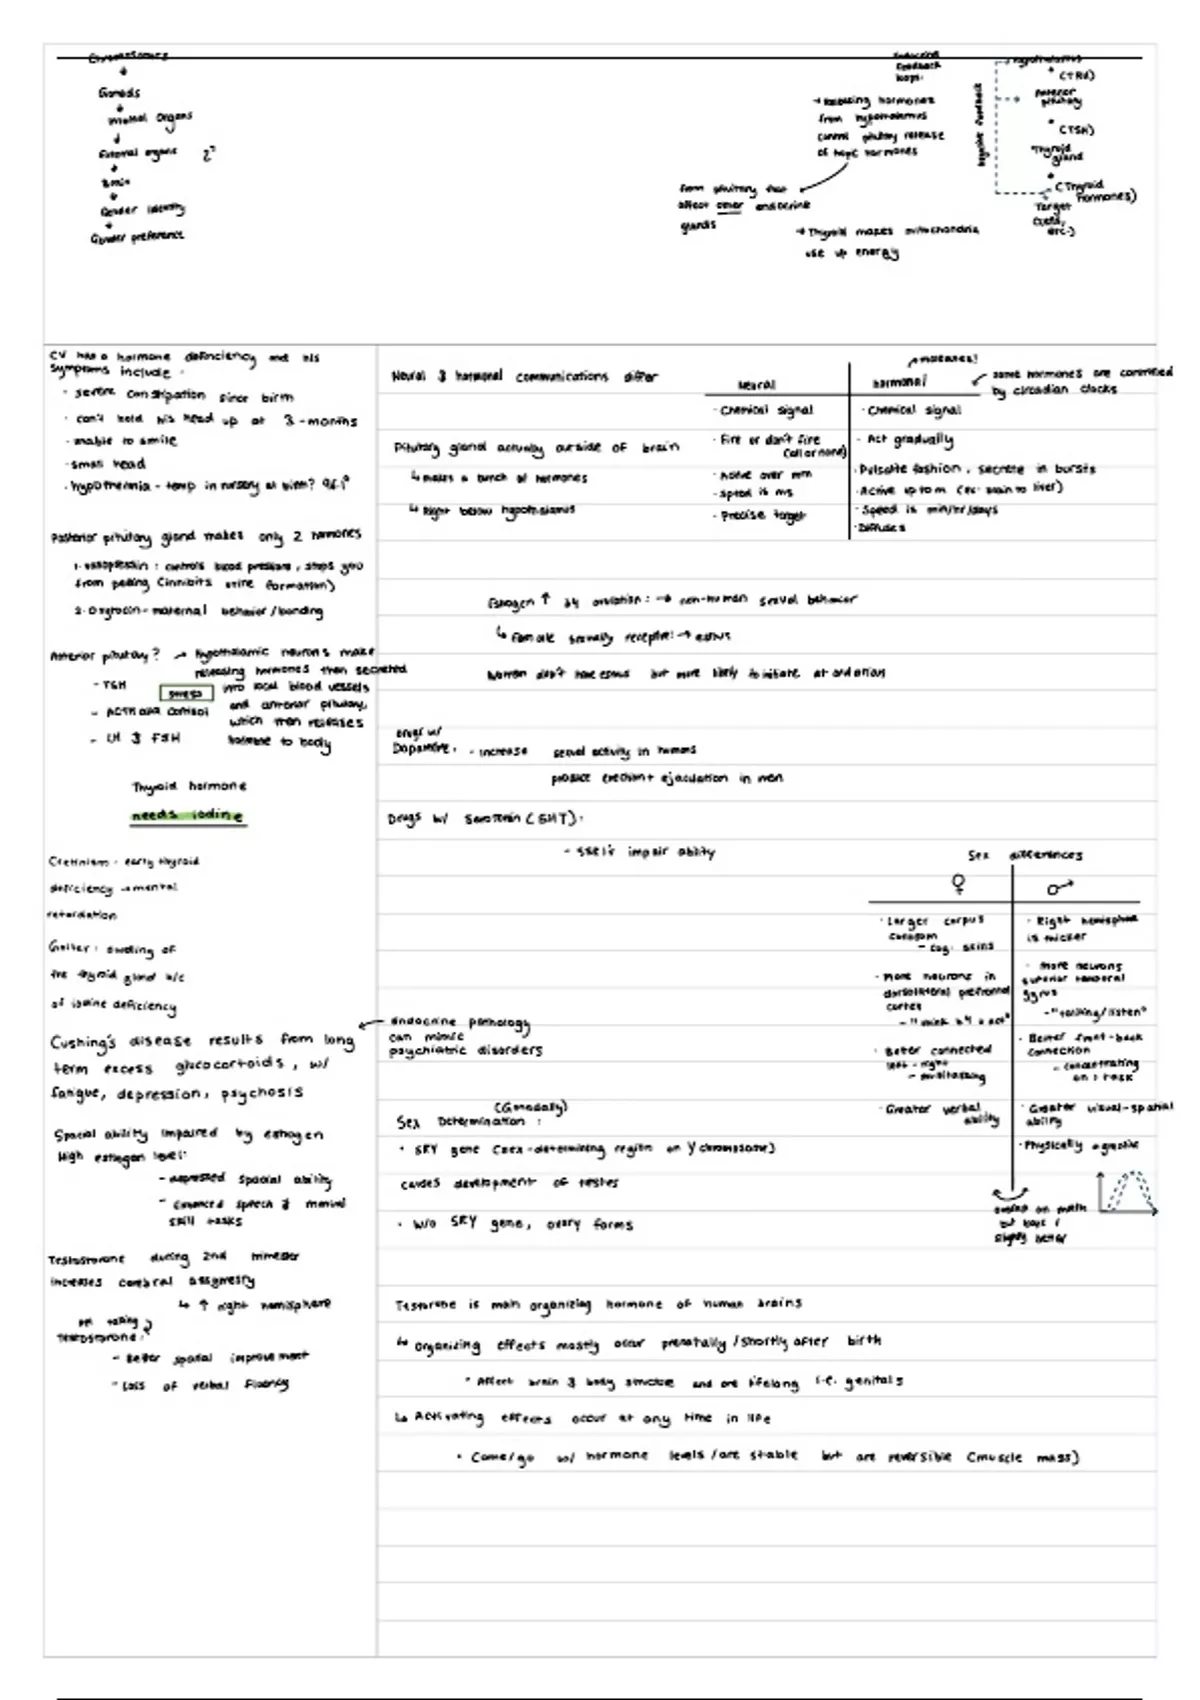 Chromosomes
Gonads
Internal Organs
External organs 2°
Brain
Gender Identity
Gender preference
Endocrine
Feedback
loops:
→ Releasing hormones
from hypothalamus
control pituitary release
of tropic hormones
from pituitary that
affect other endocrine
glands
→ Thyroid makes mitochondria
use up energy
Negative feedback
Hypothalamus
(TRH)
Anterior
pituitary
(TSH)
Thyroid
gland
(Thyroid
hormones)
Target
(Cells,
etc.)
CV has a hormone deficiency and his
symptoms include:
· severe constipation since birth
· can't hold his head up at 3-months
· unable to smile
· small head
· hypothermia - temp in nursery at birth?
Posterior pituitary gland makes only 2 hormones
1. vasopressin: controls blood pressure, stops you
from peeing (inhibits urine formation)
2. Oxytocin - maternal behavior/bonding
Anterior pituitary? → hypothalamic neurons make
releasing hormones then secreted
into local blood vessels
and anterior pituitary,
which then releases
hormone to body
- TSH
stress
- ACTH and cortisol
- LH & FSH
Thyroid hormone
needs iodine
Cretinism: early thyroid
deficiency → mental
retardation
Goiter: swelling of
the thyroid gland b/c
of iodine deficiency
Cushing's disease results from long
term excess glucocortoids, w/
fatigue, depression, psychosis
Spacial ability impaired by estrogen
High estrogen level:
- depressed spacial ability
- Enhanced speech & manual
skill tasks
Testosterone during 2nd trimester
increases cerebral assymetry
↳ ↑ right hemisphere
taking
testosterone:
- Better spatial improvement
- Loss of verbal fluency
Neural & hormonal communications differ
Pituitary gland activity outside of brain
↳ makes a bunch of hormones
↳ Right below hypothalamus
Neural
· Chemical signal
· Fire or don't fire
(all or none)
· Active over mm
· Speed is ms
· Precise target
molecules!
hormonal
some hormones are controlled
by circadian clocks
· Chemical signal
· Act gradually
· Pulsate fashion, secrete in bursts
· Active up to m (ex: brain to liver)
· Speed is min/hr/days
· Diffuses
Estrogen ↑ by ovulation: → non-human sexual behavior
↳ Female sexually receptive: → estrus
Women don't have estrus but more likely to initiate at ovulation
Drugs w/
Dopamine: - increase sexual activity in humans
produce erection + ejaculation in men
Drugs w/ Serotonin (5HT):
- SSRIs impair ability
endocrine pathology
can mimic
psychiatric disorders
(Gonadally)
Sex Determination:
· SRY gene (sex-determining region on Y chromosome)
causes development of testes
· w/o SRY gene, ovary forms
Sex differences
♀
· Larger corpus
callosum
- cog. skills
· More neurons in
dorsolateral prefrontal
cortex
- "think b4 u act"
· Better connected
left-right
- multitasking
· Greater verbal
ability
♂
· Right hemisphere
is thicker
· more neurons
superior temporal
gyrus
- "talking/listen"
· Better front-back
connection
- concentrating
on 1 task
· Greater visual-spatial
ability
· Physically agressive
on math
but boys r
slightly better
Testorone is main organizing hormone of human brains
↳ Organizing effects mostly occur prenatally/shortly after birth
· Affect brain & body structure and are lifelong i.e. genitals
↳ Activating effects occur at any time in life
· Come/go w/ hormone levels/are stable but are reversible (muscle mass)